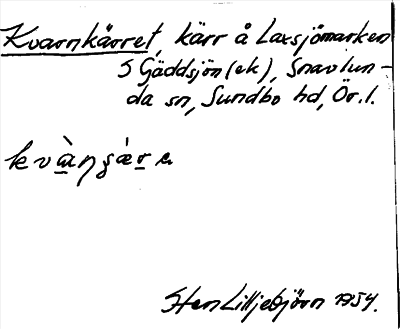 Kvarnkärret, kärr å Laxsjömarken
S Gäddsjön (ek), Snavlun-
da sn, Sundbo hd, Ör. l.
Sten Lilljebjörn 1954.